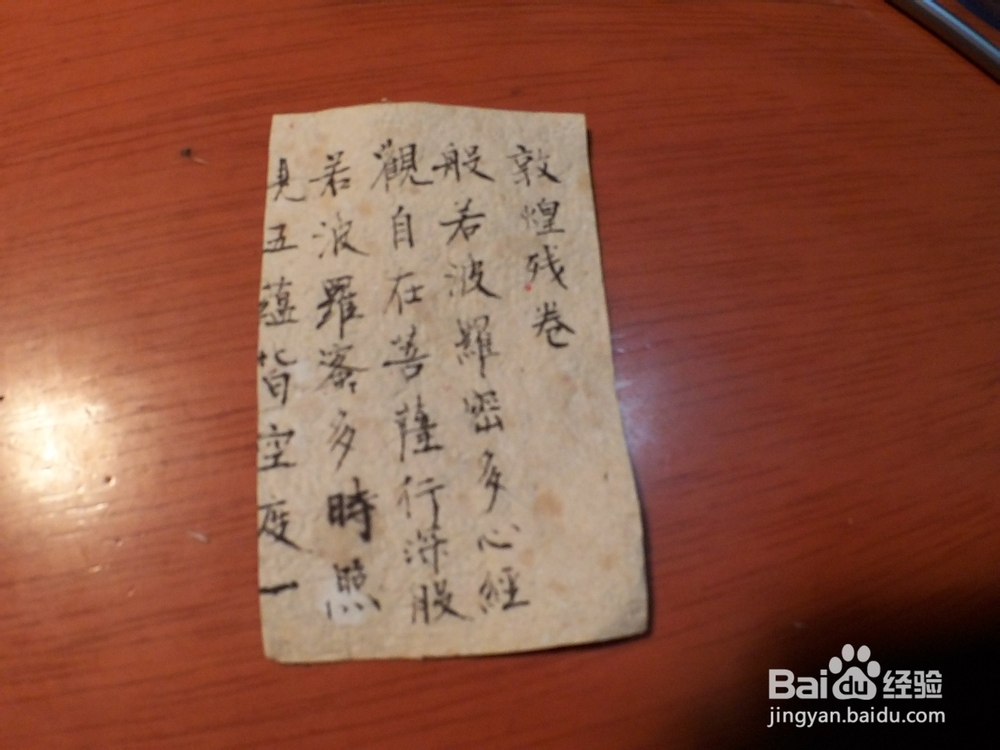 敦煌残卷
般若波羅密多心經
觀自在菩薩行深般
若波羅密多時照
見五蘊皆空度一
Baidu经验
jingyan.baidu.com